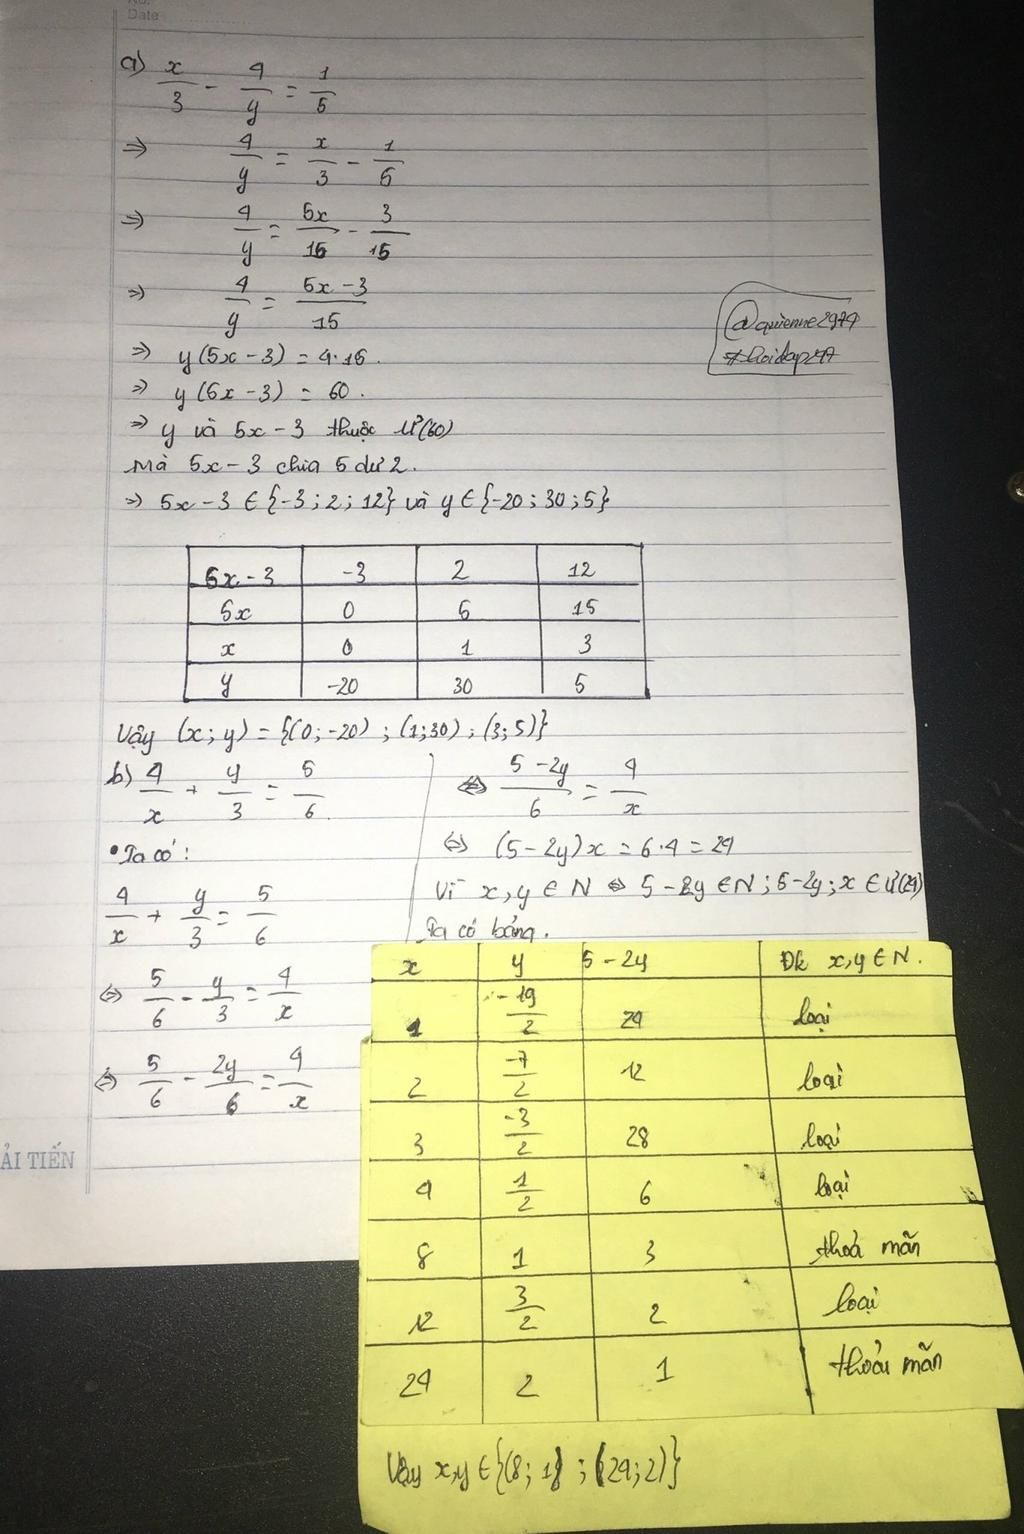 No.
Date
a) x/3 - 4/y = 1/5
=> 4/y = x/3 - 1/5
=> 4/y = 5x/15 - 3/15
=> 4/y = 5x - 3/15
=> y(5x - 3) = 4.15.
=> y(5x - 3) = 60.
=> y và 5x - 3 thuộc Ư(60)
Mà 5x - 3 chia 5 dư 2.
=> 5x - 3 ∈ {-3; 2; 12} và y ∈ {-20; 30; 5}
5x - 3 -3 2 12
5x 0 5 15
x 0 1 3
y -20 30 5
Vậy (x; y) = {(0; -20); (1; 30); (3; 5)}
b) 4/x + y/3 = 5/6
• Ta có:
4/x + y/3 = 5/6
<=> 5/6 - y/3 = 4/x
<=> 5/6 - 2y/6 = 4/x
<=> 5 - 2y/6 = 4/x
<=> (5 - 2y)x = 6.4 = 24
Vì x, y ∈ N <=> 5 - 2y ∈ N; 5 - 2y; x ∈ Ư(24)
Ta có bảng.
x y 5 - 2y Đk x, y ∈ N.
1 -19/2 24 loại
2 -7/2 12 loại
3 -3/2 28 loại
4 1/2 6 loại
8 1 3 thoả mãn
12 3/2 2 loại
24 2 1 thoả mãn
Vậy x, y ∈ {(8; 1); (24; 2)}
#hoidap247
ẢI TIẾN